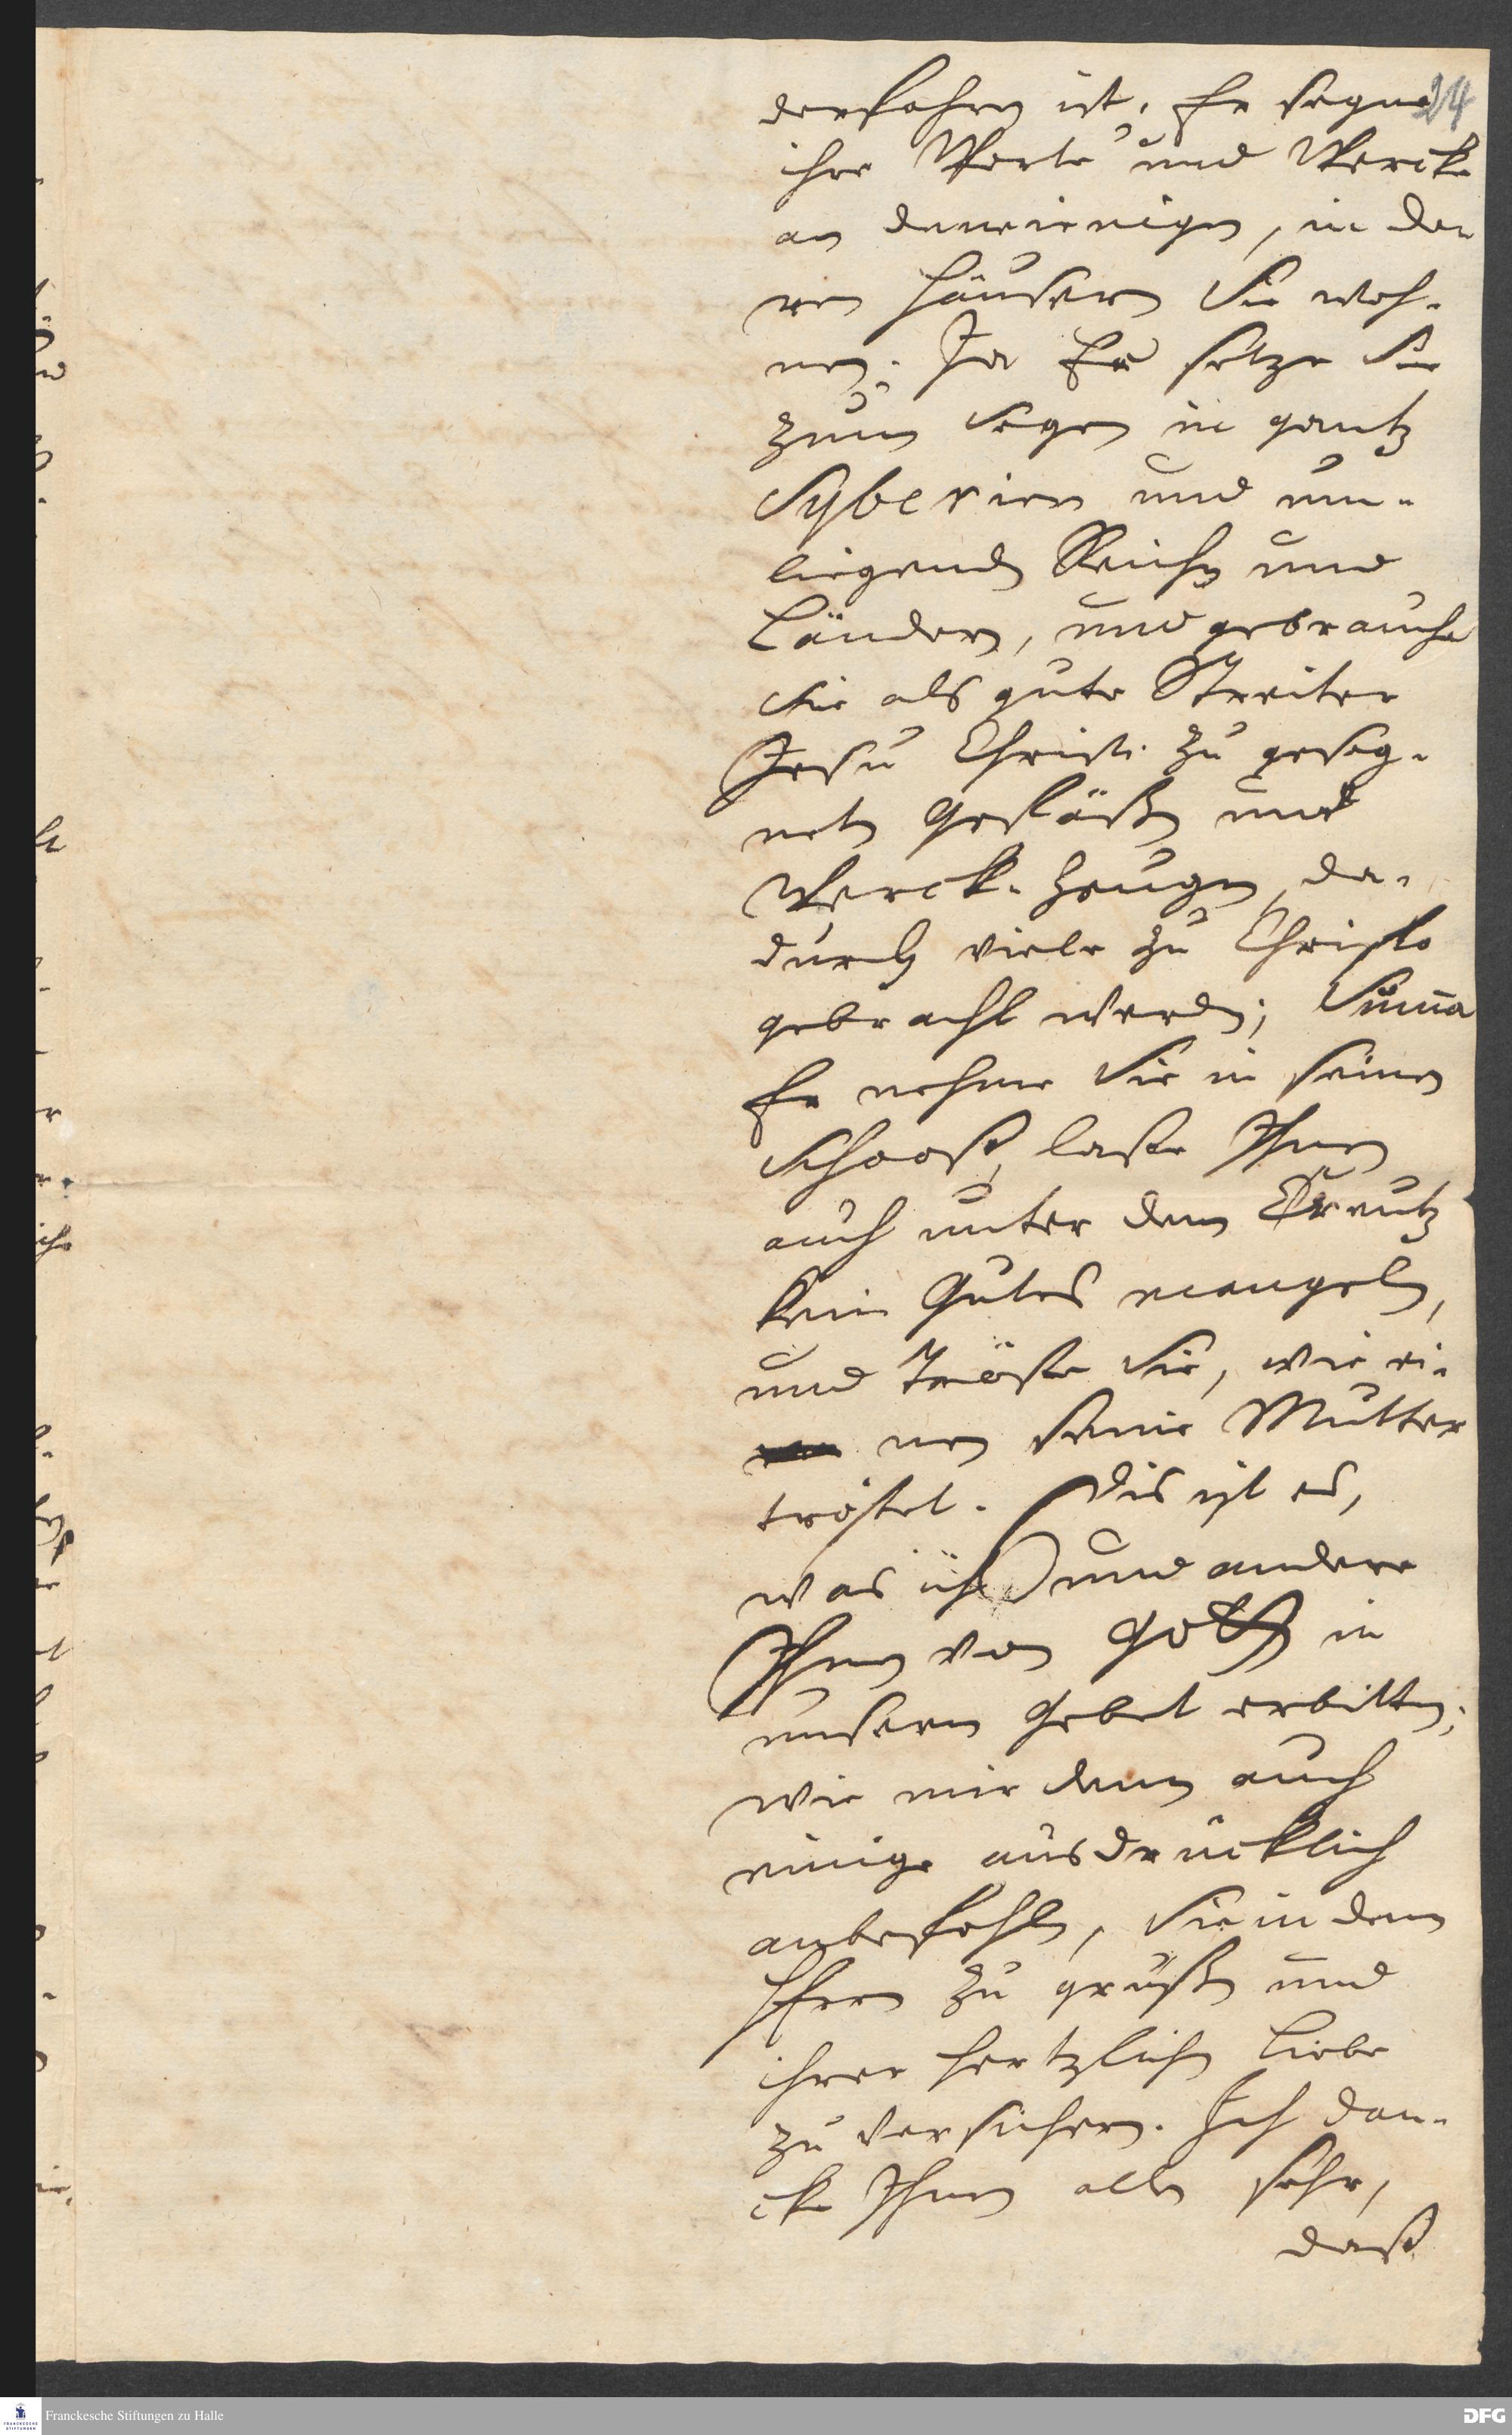 24
derfahren ist. Er segne
ihre Worte und Wercke
an denenienigen, in de-
ren Häusern Sie woh-
nen. Ja Er setze Sie
zum Segen in gantz
Syberien und um-
liegenden Reichen und
Ländern, und gebrauche
Sie als gute Streiter
Jesu Christi zu geseg-
neten Gefäßen und
Werck-Zeugen, da-
durch viele zu Christo
gebracht werden; Summa
Er nehme Sie in seinen
Schooß, laße Ihnen
auch unter dem Creutz
kein Gutes mangeln,
und tröste Sie, wie ei-
nen seine Mutter
tröstet. Dis ist es,
was ich und andere
Ihnen von Gott in
unserm Gebet erbitten;
wie mir denn auch
einige ausdrücklich
anbefohlen, Sie in dem
HErrn zu grüßen und
ihrer hertzlichen Liebe
zu versichern. Ich dan-
cke Ihnen allen sehr,
daß
Franckesche Stiftungen zu Halle
DFG